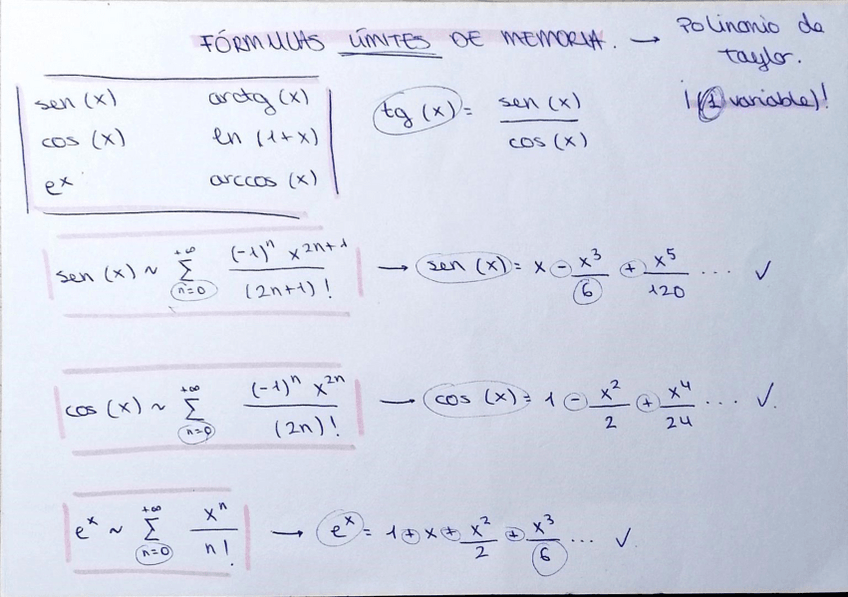 FÓRMULAS LÍMITES DE MEMORIA. → Polinomio de
taylor.
¡(1 variable)!
sen (x) arctg (x)
cos (x) ln (1+x)
e^x arccos (x)
tg (x) = sen (x) / cos (x)
sen (x) ~ +∞ Σ n=0 (-1)^n x^(2n+1) / (2n+1)! → sen (x) = x - x^3/6 + x^5/120 ... ✓
cos (x) ~ +∞ Σ n=0 (-1)^n x^(2n) / (2n)! → cos (x) = 1 - x^2/2 + x^4/24 ... ✓
e^x ~ +∞ Σ n=0 x^n / n! → e^x = 1 + x + x^2/2 + x^3/6 ... ✓